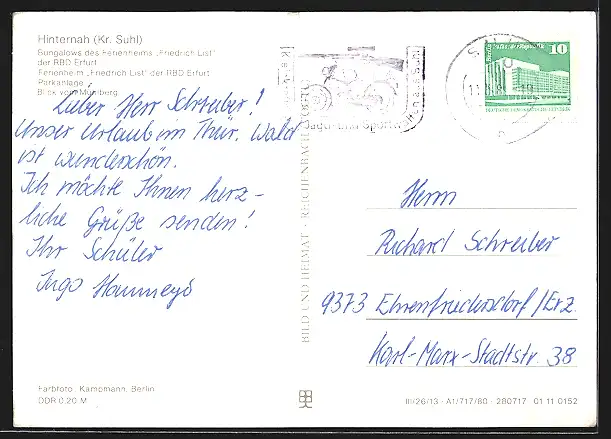 Hinternah (Kr. Suhl)
Bungalows des Ferienheims „Friedrich List"
der RBD Erfurt
Ferienheim „Friedrich List" der RBD Erfurt
Parkanlage
Blick vom Mühlberg
Lieber Herr Schreiber!
Unser Urlaub im Thür. Wald
ist wunderschön.
Ich möchte Ihnen herz-
liche Grüße senden!
Ihr Schüler
Ingo
Farbfoto: Kampmann, Berlin
DDR 0,20 M
BILD UND HEIMAT · REICHENBACH
10
Herrn
Richard Schreiber
9373 Ehrenfriedersdorf/Erz.
Karl-Marx-Stadtstr. 38
III/26/13 · A1/717/80 · 280717 01 11 0152